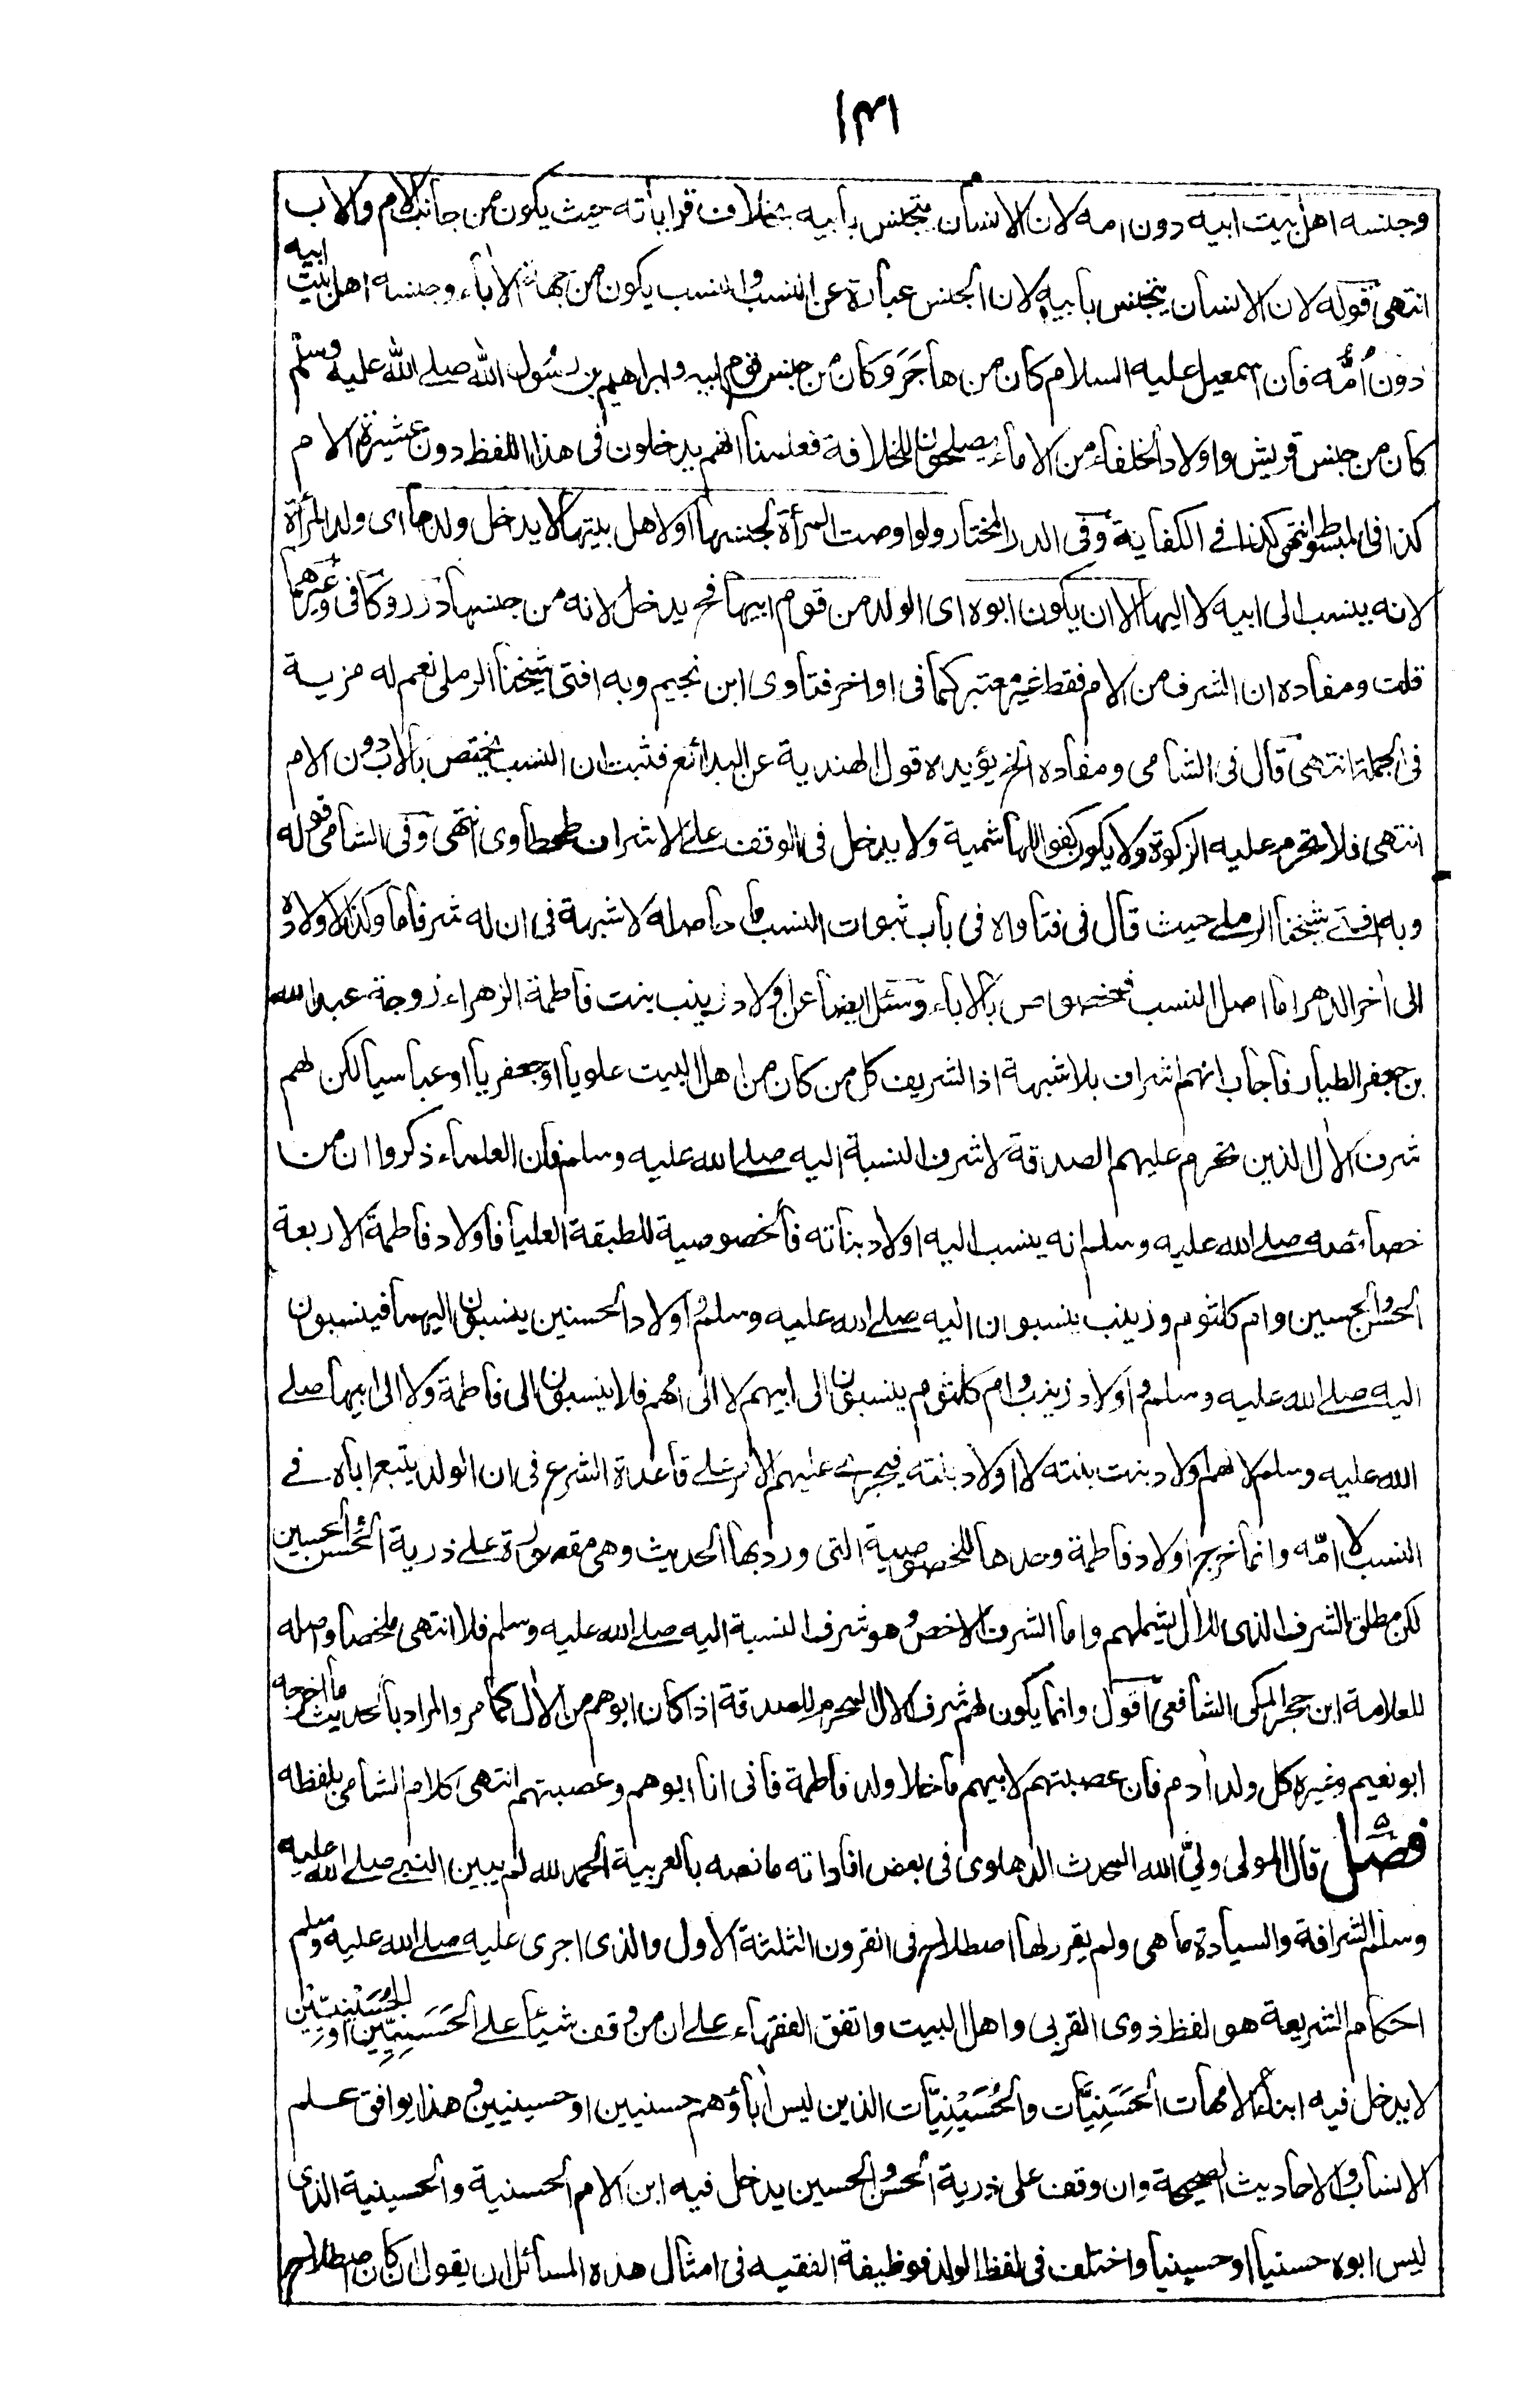 ١٣١
وجنسه اهل بيت ابيه دون امه لان الانسان يتجنس بابيه بخلاف قراباته حيث يكون من جانب الام والاب
انتهى قوله لان الانسان يتجنس بابيه لان الجنس عبارة عن النسب والنسب يكون من جهة الاباء وجنسه اهل بيت ابيه
دون اُمّه فان اسمعيل عليه السلام كان من هاجَرَ وكان من جنس قوم ابيه وابراهيم بن رسُول الله صلے الله عليه وسلم
كان من جنس قريش واولاد الخلفاء من الاماء يصلحون للخلافة فعلمنا انهم يدخلون فى هذا اللفظ دون عشيرة الام
كذا فى المبسوط انتهى كذا فے الكفاية وفى الدر المختار ولو اوصت المرأة لجنسها او لاهل بيتها لا يدخل ولدها اى ولد المرأة
لانه ينسب الى ابيه لا اليها الا ان يكون ابوه اى الولد من قوم ابيها فح يدخل لانه من جنسها درر وكافى وغيرهما
قلت ومفاده ان الشرف من الام فقط غير معتبر كما فى اواخر فتاوى ابن نجيم وبه افتى شيخنا الرملى نعم له مزية
فى الجملة انتهى قال فى الشامى ومفاده الخ يؤيده قول الهندية عن البدائع فثبت ان النسب يختص بالاب دون الام
انتهى فلا تحرم عليه الزكوة ولا يكون كفوا للهاشمية ولا يدخل فى الوقف علے الاشراف طحطاوى انتهى وفى الشامى قوله
وبه افتے شيخنا الرملے حيث قال فى فتاواه فى باب ثبوت النسب ما حاصله لا شبهة فى ان له شرفا ما وكذا لاولاده
الى اٰخر الدهر اما اصل النسب فمخصوص بالاباء وسئل ايضا عن اولاد زينب بنت فاطمة الزهراء زوجة عبد الله
بن جعفر الطيار فاجاب انهم اشراف بلا شبهة اذ الشريف كل من كان من اهل البيت علويا او جعفريا او عباسيا لكن لهم
شرف الاٰل الذين تحرم عليهم الصدقة لا شرف النسبة اليه صلے الله عليه وسلم فان العلماء ذكروا ان من
خصائصه صلے الله عليه وسلم انه ينسب اليه اولاد بناته فالخصوصية للطبقة العليا فاولاد فاطمة الاربعة
الحسن والحسين وام كلثوم وزينب ينسبون اليه صلے الله عليه وسلم واولاد الحسنين ينسبون اليهما فينسبون
اليه صلے الله عليه وسلم واولاد زينب وام كلثوم ينسبون الى ابيهم لا الى امهم فلا ينسبون الى فاطمة ولا الى ابيها صلے
الله عليه وسلم لانهم اولاد بنت بنته لا اولاد بنته فيجرے عليهم الامر علے قاعدة الشرع فى ان الولد يتبع اباه فے
النسب لا امّه وانما خرج اولاد فاطمة وحدها للخصوصية التى ورد بها الحديث وهى مقصورة علے ذرية الحسن والحسين
لكن مطلق الشرف الذى للاٰل يشملهم واما الشرف الاخص وهو شرف النسبة اليه صلے الله عليه وسلم فلا انتهى ملخصا واصله
للعلامة ابن حجر المكى الشافعى اقول وانما يكون لهم شرف الاٰل المحرم للصدقة اذا كان ابوهم من الاٰل كما مر والمراد بالحديث ما اخرجه
ابو نعيم وغيره كل ولد اٰدم فان عصبتهم لابيهم ما خلا ولد فاطمة فانى انا ابوهم وعصبتهم انتهى كلام الشامى بلفظه
فصل قال المولى ولىّ الله المحدث الدهلوى فى بعض افاداته ما نصه بالعربية الحمد لله لم يبين النبے صلے الله عليه
وسلم الشرافة والسيادة ما هى ولم يقرر لها اصطلاح فى القرون الثلثة الاول والذى اجرى عليه صلے الله عليه وسلم
احكام الشريعة هو لفظ ذوى القربى واهل البيت واتفق الفقهاء علے ان من وقف شيئا علے الحَسَنِيِّين او الحُسَيْنِيّين
لا يدخل فيه ابناء الامهات الحَسَنِيَّات والحُسَيْنِيَّات الذين ليس اٰباؤهم حسنيين او حسينيين وهذا يوافق علم
الانساب والاحاديث الصحيحة وان وقف على ذرية الحسن والحسين يدخل فيه ابن الام الحسنية والحسينية الذى
ليس ابوه حسنيا او حسينيا واختلف فى لفظ الولد فوظيفة الفقيه فى امثال هذه المسائل ان يقول ان كان اصطلاح